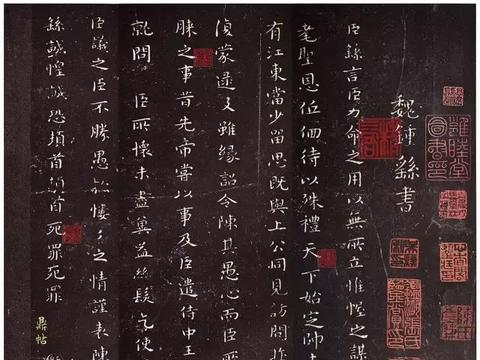 魏鍾繇書
臣繇言臣力命之用以無所立惟幄之謀
耄聖恩低佪待以殊禮天下始定帥士
有江東當少留思既與上公同見訪問
蒙逮及雖緣詔令陳其愚心而臣所
膝之事昔先帝嘗以事及臣遣侍中王
就問臣所懷未盡奚益絲髮乞使
臣議之臣不勝愚款慺慺之情謹表陳
繇誠惶誠恐頓首頓首死罪死罪
鼎帖